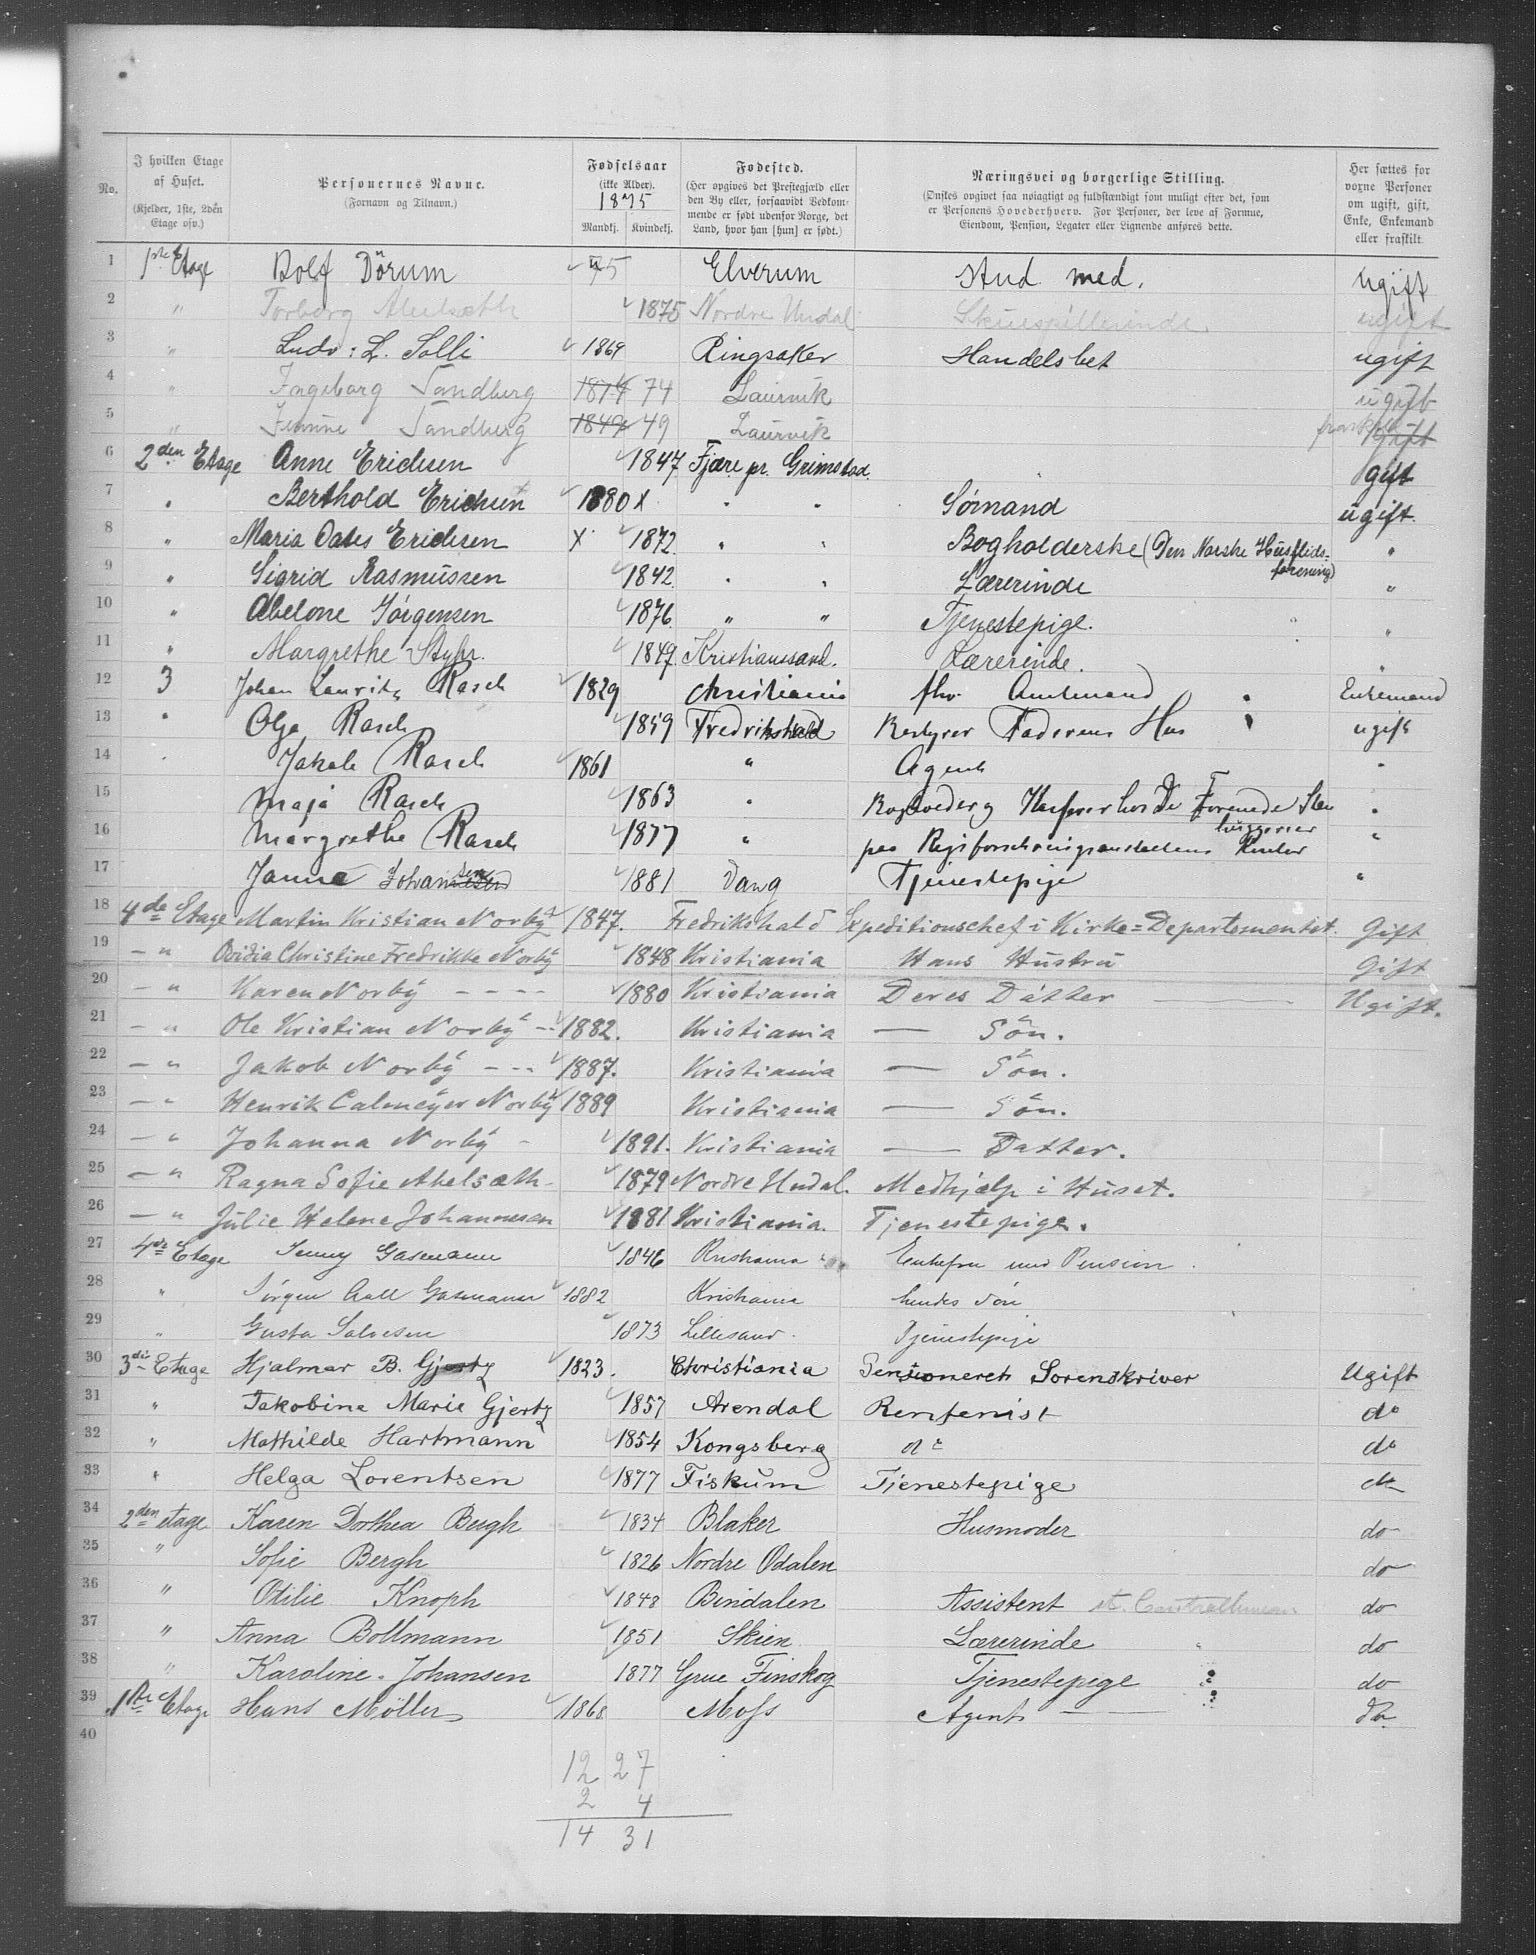 No.
I hvilken Etage af Huset. (Kjelder, 1ste, 2den Etage osv.)
Personernes Navne. (Fornavn og Tilnavn.)
Fødselsaar (ikke Alder). 1875 Mandkj. Kvindekj.
Fødested. (Her opgives det Prestegjæld eller den By eller, forsaavidt Vedkommende er født udenfor Norge, det Land, hvor han [hun] er født.)
Næringsvei og borgerlige Stilling. (Ønskes opgivet saa nøiagtigt og fuldstændigt som muligt efter det, som er Personens Hovederhverv. For Personer, der leve af Formue, Eiendom, Pension, Legater eller Lignende anføres dette.
Her sættes for voxne Personer om ugift, gift, Enke, Enkemand eller fraskilt
1 1ste Etage Rolf Dörum 75 Elverum stud med. ugift
2 " Torborg Abelsæth 1875 Nordre Undal Skuespillerinde ugift
3 " Ludv: L. Solli 1869 Ringsaker Handelsbet ugift
4 " Ingeborg Sandberg 1874 74 Laurvik ugift
5 " Sandberg 1849 49 Laurvik gift
6 2den Etage Anne Erichsen 1847 Fjære pr. Grimstad gift
7 " Berthold Erichsen 1880 x " " Sømand ugift.
8 " Maria Oates Erichsen x 1872. " " Bogholderske (Den Norske Husflids-forening) "
9 " Sigrid Rasmussen 1842 " " Lærerinde "
10 " Abelone Jörgensen 1876 " " Tjenestepige. "
11 " Margrethe Styhr. 1847. Kristianssand. Lærerinde. "
12 3 Johan Lauritz Rasch 1829 Christiania fhv. Amtmand Enkemand
13 " Olga Rasch 1859 Fredrikshald Bestyrer Faderens Hus ugift
14 Jakob Rasch 1861 " Agent "
15 Maja Rasch 1863 " De Forenede Sten huggerier "
16 Margrethe Rasch 1877 " paa Rigsforsikringsanstaltens Kontor "
17 Janna Johansen 1881 Vang Tjenestepige "
18 4de Etage Martin Kristian Norby 1847. Fredrikshald Expeditionschef i Kirke=Departementet. Gift
19 — " Ovidia Christine Fredrikke Norby 1848 Kristiania Hans Hustru Gift
20 — " Karen Norby - - - - 1880 Kristiania Deres Datter — Ugift.
21 — " Ole Kristian Norby - - 1882. Kristiania — Sön.
22 — " Jakob Norby - - - 1887. Kristiania — Sön.
23 — " Henrik Calmeyer Norby 1889 Kristiania — Sön.
24 — " Johanna Norby - 1891. Kristiania — Datter.
25 — " Ragna Sofie Abelsæth - 1879 Nordre Undal. Medhjælp i Huset.
26 — " Julie Helene Johannesen 1881 Kristiania. Tjenestepige.
27 4de Etage Jenny Gasmann 1846 Kristiania Enkefru med Pension
28 " Jörgen Aall Gasmann 1882 Kristiania hendes Sön
29 " Gusta Salvesen 1873 Lillesand. Tjenestepige
30 3die Etage Hjalmar B. Gjertz 1823. Christiania Pensioneret Sorenskriver Ugift
31 " Jakobine Marie Gjertz 1857 Arendal Rentenist do
32 " Mathilde Hartmann 1854 Kongsberg do do
33 " Helga Lorentsen 1877 Fiskum Tjenestepige do
34 2den etage Karen Dorthea Bergh 1834 Blaker Husmoder do
35 " Sofie Bergh 1826 Nordre Odalen do
36 " Otilie Knoph 1848 Bindalen Assistent do
37 " Anna Bollmann 1851 Skien Lærerinde do
38 " Karoline Johansen 1877 Grue Finskog Tjenestepige do
39 1ste Etage Hans Möller 1868 Moss Agent — do
40
12 27
2 4
14 31